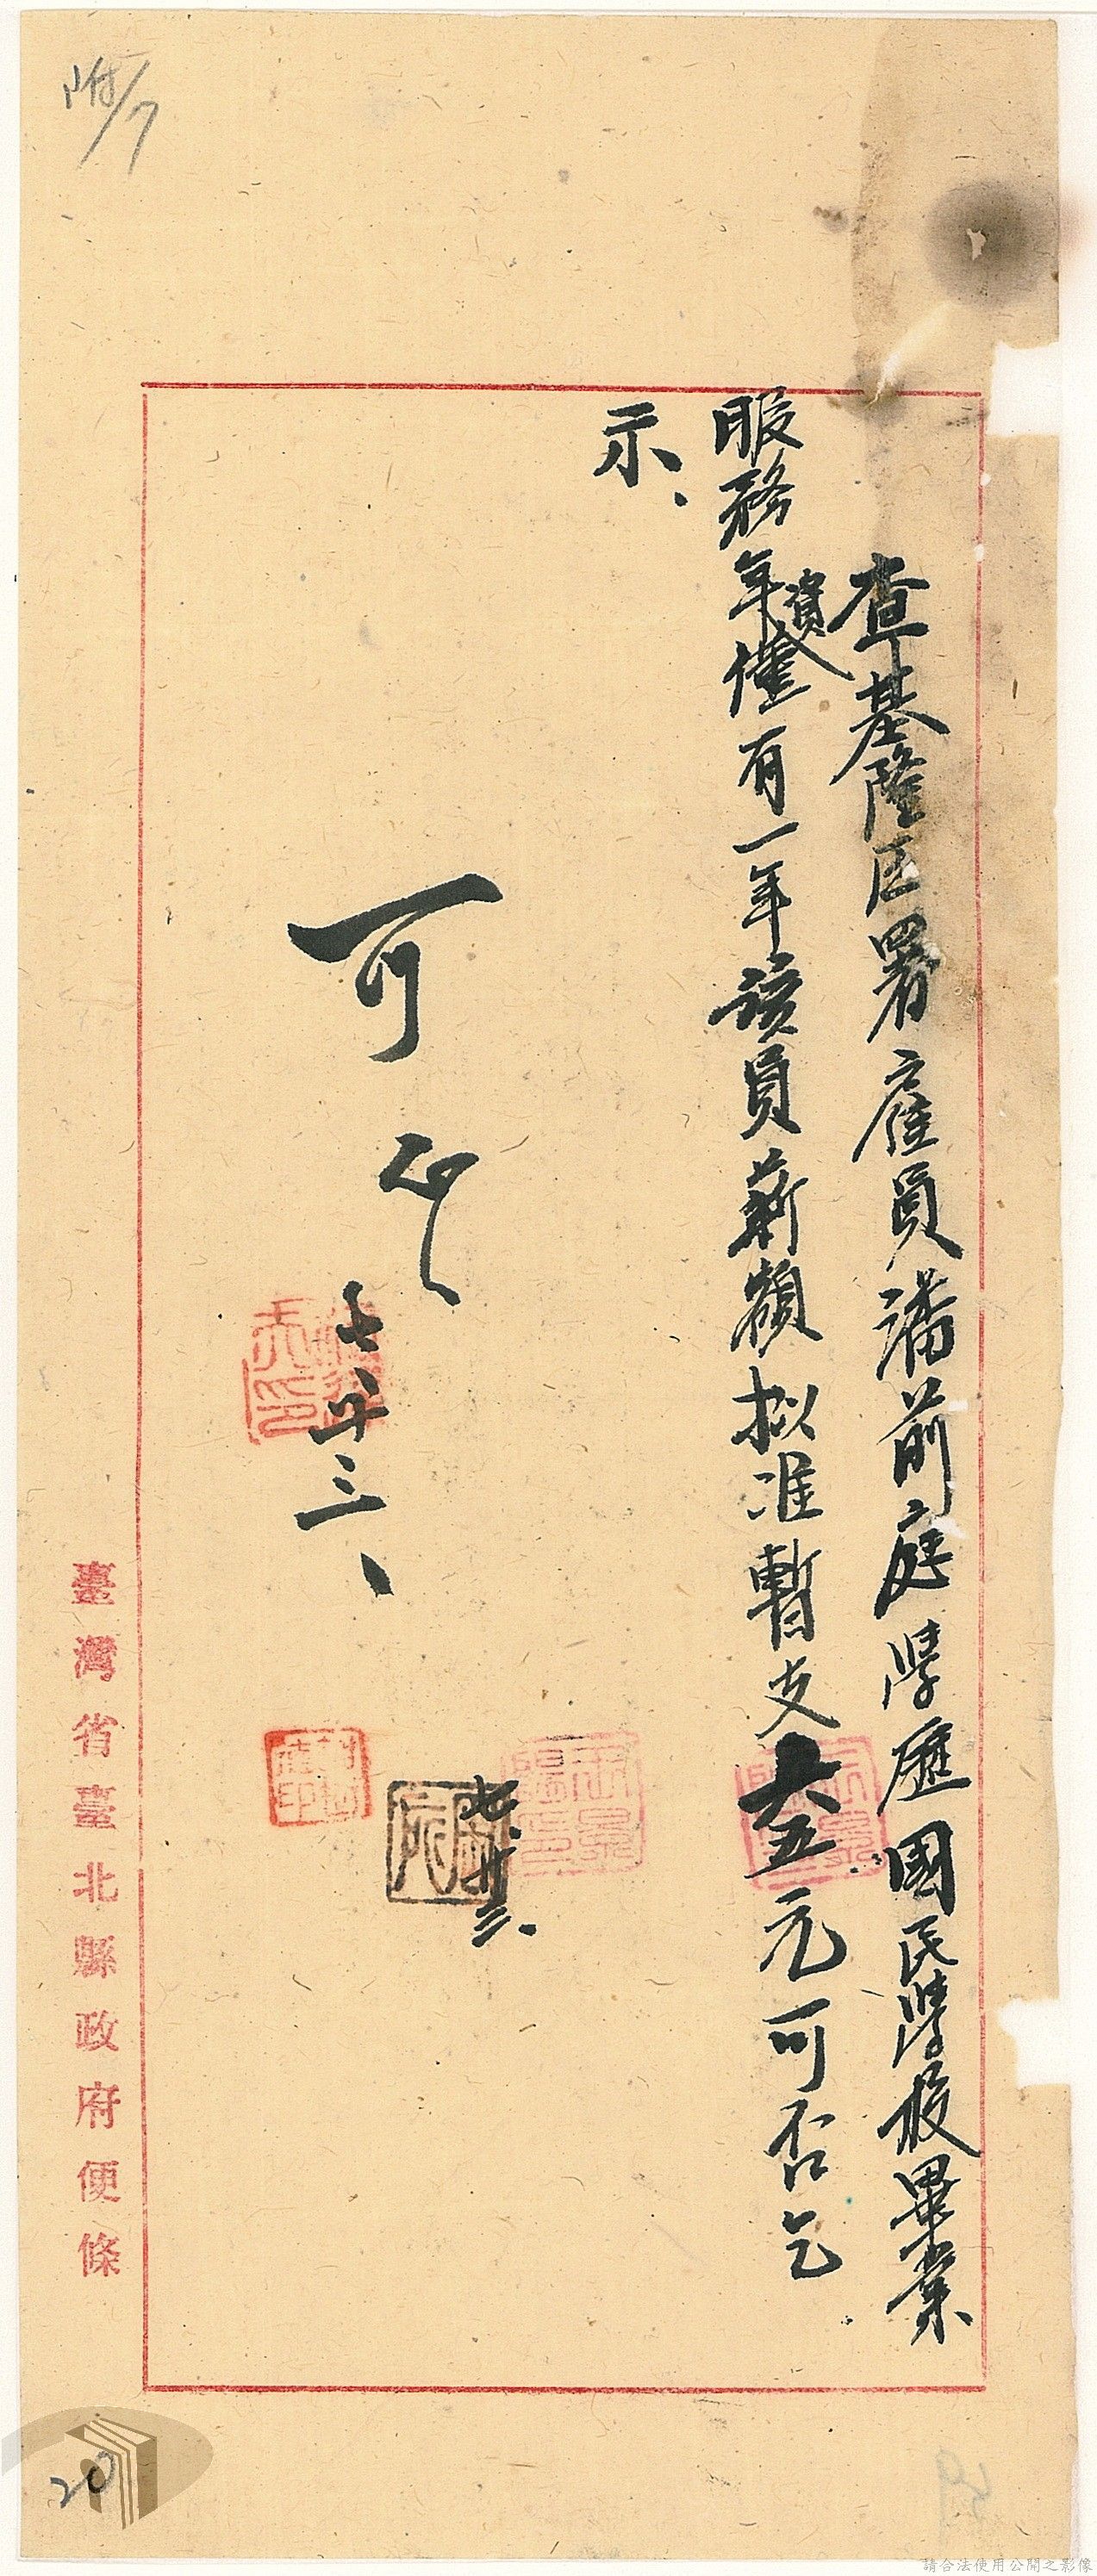 附/7
查基隆區署雇員潘前庭學歷國民學校畢業
服務年資僅有一年該員薪額拟准暫支六五元可否乞
示、
可
七廿三、
七.廿三.
臺灣省臺北縣政府便條
20
請合法使用公開之影像